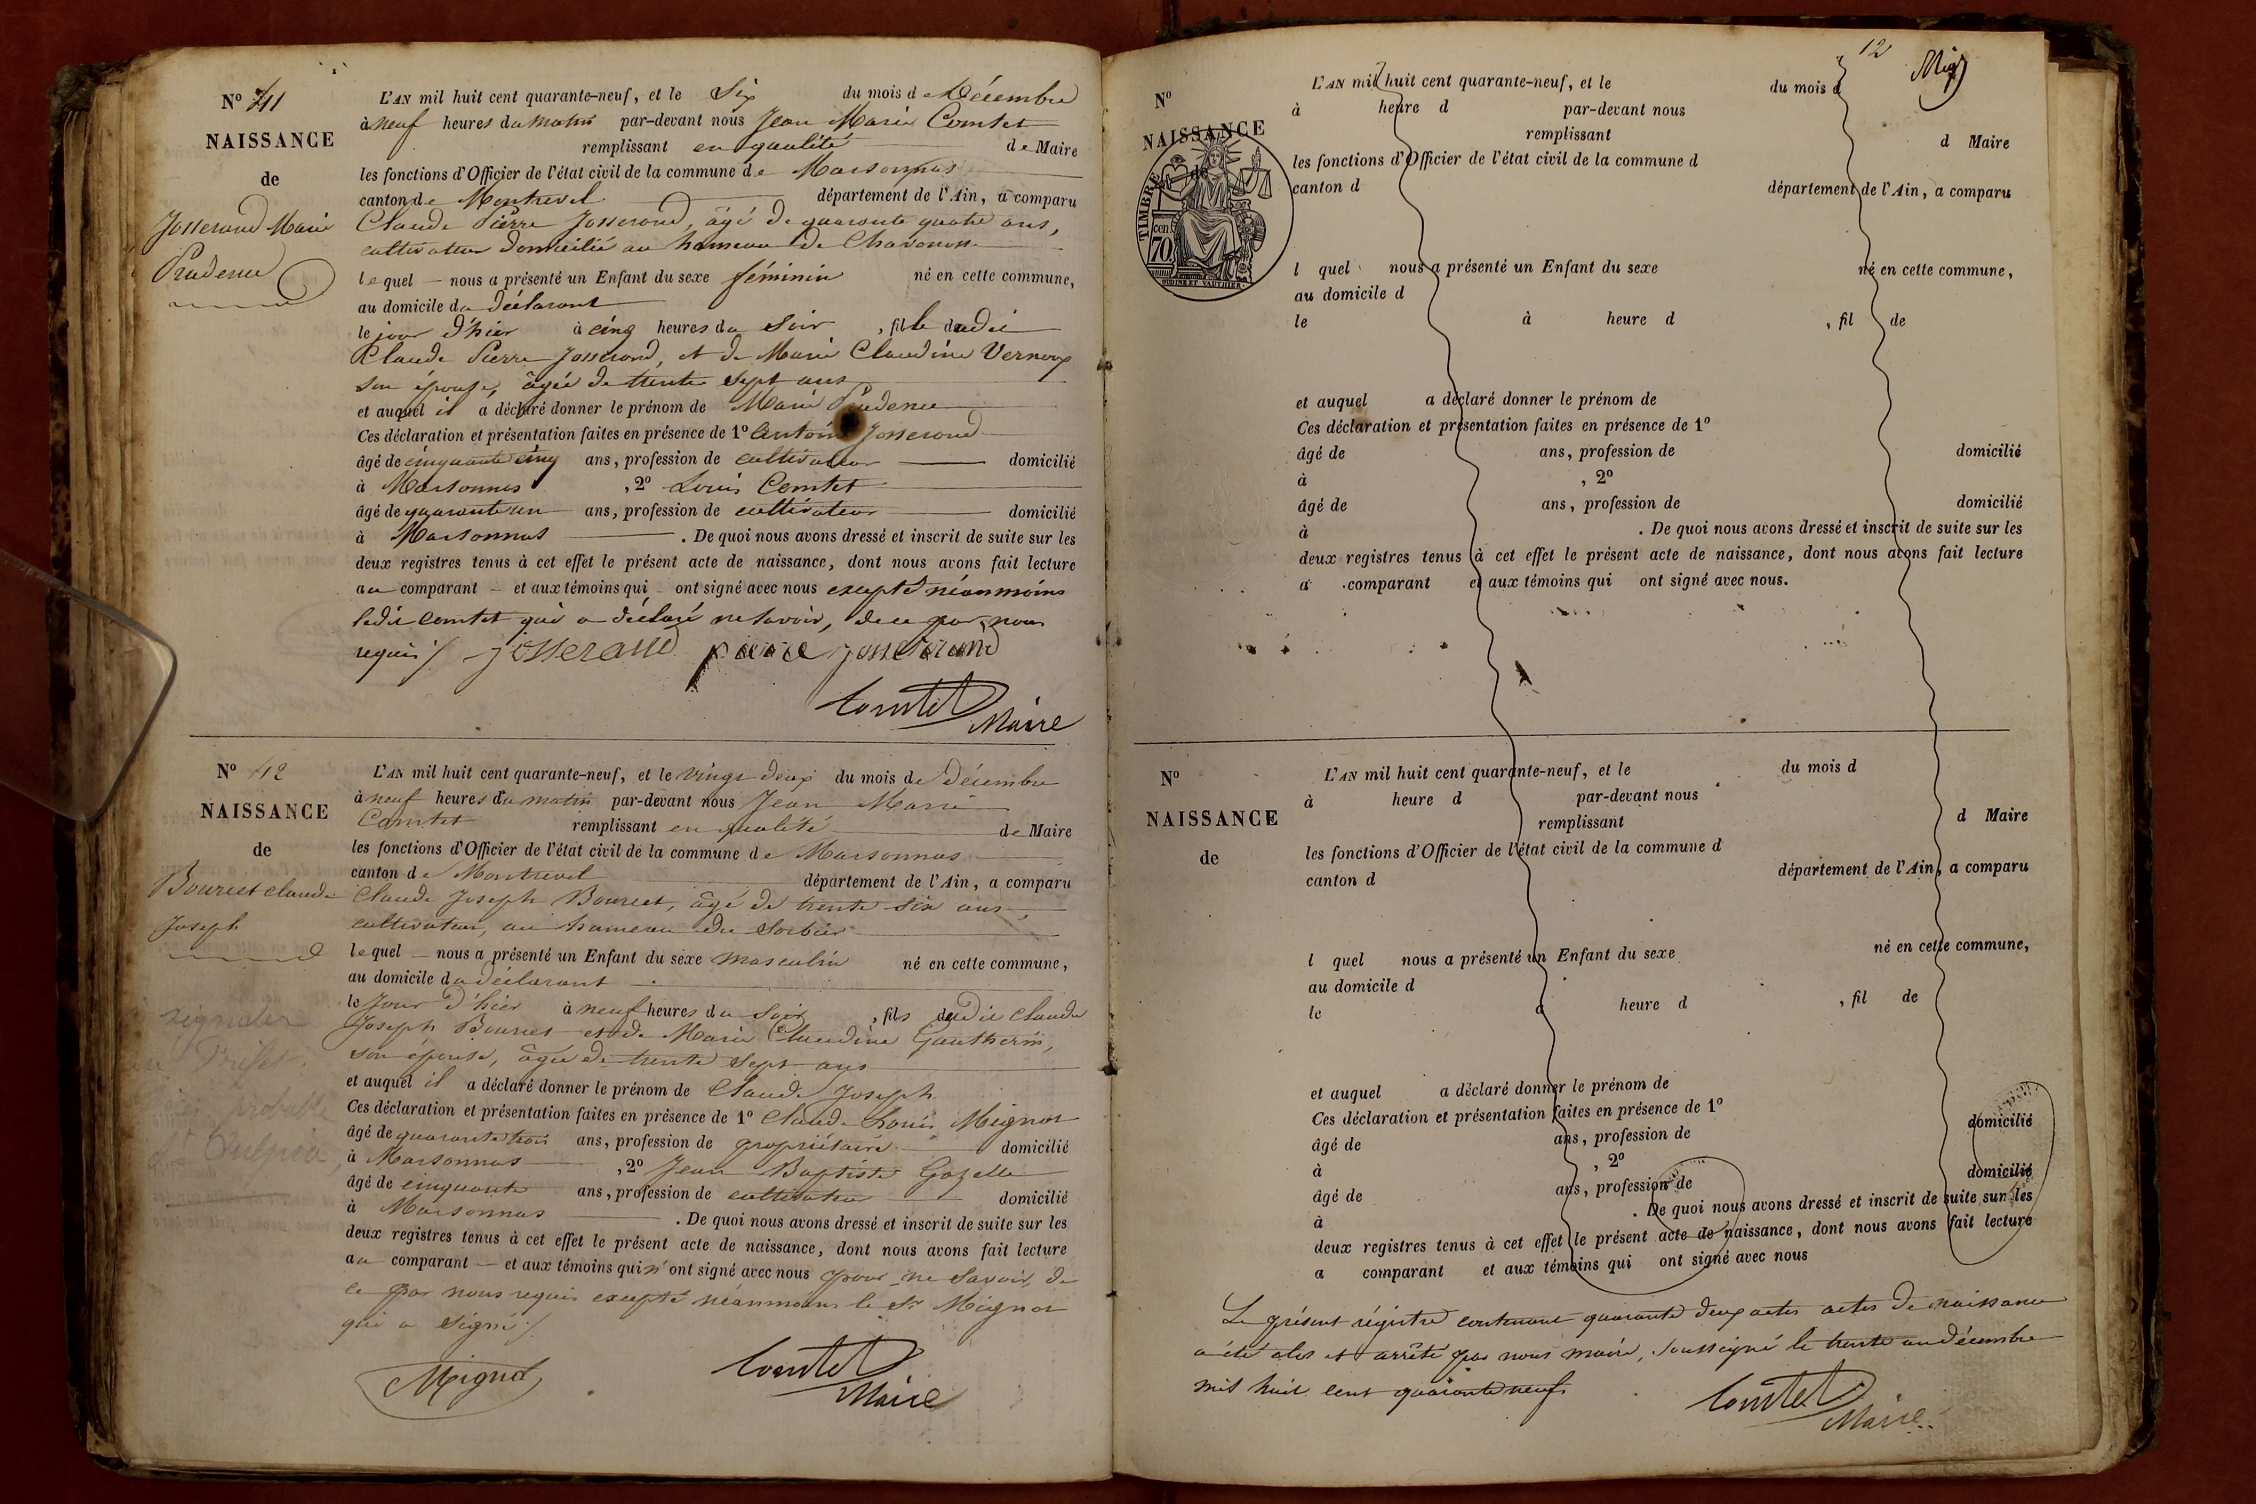 N° 41
NAISSANCE
de
Josserand Marie
Prudence
L'AN mil huit cent quarante-neuf, et le Six du mois de Décembre
à neuf heures du matin par-devant nous Jean Marie Comtet
remplissant en qualité de Maire
les fonctions d'Officier de l'état civil de la commune de Marsonnas
canton de Montrevel département de l'Ain, a comparu
Claude Pierre Josserand, âgé de quarante quatre ans,
cultivateur domicilié au hameau de
lequel nous a présenté un Enfant du sexe féminin né en cette commune,
au domicile du déclarant
le jour d'hier à cinq heures du Soir, fille dudit
Claude Pierre Josserand, et de Marie Claudine Vernoux
son épouse, âgée de trente sept ans
et auquel il a déclaré donner le prénom de Marie Prudence
Ces déclaration et présentation faites en présence de 1° Antoine Josserand
âgé de cinquante cinq ans, profession de cultivateur domicilié
à Marsonnas, 2° Louis Comtet
âgé de quarante un ans, profession de cultivateur domicilié
à Marsonnas. De quoi nous avons dressé et inscrit de suite sur les
deux registres tenus à cet effet le présent acte de naissance, dont nous avons fait lecture
au comparant et aux témoins qui ont signé avec nous excepté néanmoins
ledit comtet qui a déclaré ne savoir, de ce par nous
requis /. josserand pierre josserand
Comtet
Maire
N° 42
NAISSANCE
de
Bourcet claude
Joseph
L'AN mil huit cent quarante-neuf, et le vingt deux du mois de Décembre
à neuf heures du matin par-devant nous Jean Marie
Comtet remplissant en qualité de Maire
les fonctions d'Officier de l'état civil de la commune de Marsonnas
canton de Montrevel département de l'Ain, a comparu
Claude Joseph Bourcet, âgé de trente six ans,
cultivateur, au hameau du Sorbier
lequel nous a présenté un Enfant du sexe masculin né en cette commune,
au domicile du déclarant
le Jour d'hier à neuf heures du Soir, fils dudit Claude
Joseph Bourcet et de Marie Claudine Gautherin,
son épouse, âgée de trente sept ans
et auquel il a déclaré donner le prénom de Claude Joseph
Ces déclaration et présentation faites en présence de 1° Claude Louis Mignot
âgé de quarante trois ans, profession de propriétaire domicilié
à Marsonnas, 2° Jean Baptiste Gozelle
âgé de cinquante ans, profession de cultivateur domicilié
à Marsonnas. De quoi nous avons dressé et inscrit de suite sur les
deux registres tenus à cet effet le présent acte de naissance, dont nous avons fait lecture
au comparant et aux témoins qui n'ont signé avec nous pour ne savoir, de
ce par nous requis excepté néanmoins le Sr Mignot
qui a signé /.
Mignot
Comtet
Maire
12
N°
NAISSANCE
de
TIMBRE
70 cen
L'AN mil huit cent quarante-neuf, et le du mois d
à heure d par-devant nous
remplissant d Maire
les fonctions d'Officier de l'état civil de la commune d
canton d département de l'Ain, a comparu
l quel nous a présenté un Enfant du sexe né en cette commune,
au domicile d
le à heure d , fil de
et auquel a déclaré donner le prénom de
Ces déclaration et présentation faites en présence de 1°
âgé de ans, profession de domicilié
à , 2°
âgé de ans, profession de domicilié
à . De quoi nous avons dressé et inscrit de suite sur les
deux registres tenus à cet effet le présent acte de naissance, dont nous avons fait lecture
a comparant et aux témoins qui ont signé avec nous.
N°
NAISSANCE
de
L'AN mil huit cent quarante-neuf, et le du mois d
à heure d par-devant nous
remplissant d Maire
les fonctions d'Officier de l'état civil de la commune d
canton d département de l'Ain, a comparu
l quel nous a présenté un Enfant du sexe né en cette commune,
au domicile d
le à heure d , fil de
et auquel a déclaré donner le prénom de
Ces déclaration et présentation faites en présence de 1°
âgé de ans, profession de domicilié
à , 2°
âgé de ans, profession de domicilié
à . De quoi nous avons dressé et inscrit de suite sur les
deux registres tenus à cet effet le présent acte de naissance, dont nous avons fait lecture
a comparant et aux témoins qui ont signé avec nous
Le présent régistre contenant quarante deux actes actes de naissance
a été clos et arrêté par nous maire, soussigné le trente un décembre
mil huit cent quarante neuf.
Comtet
Maire